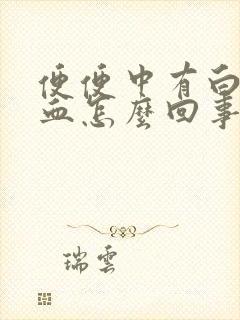 便便中有白
血怎麼回事
瑞雲